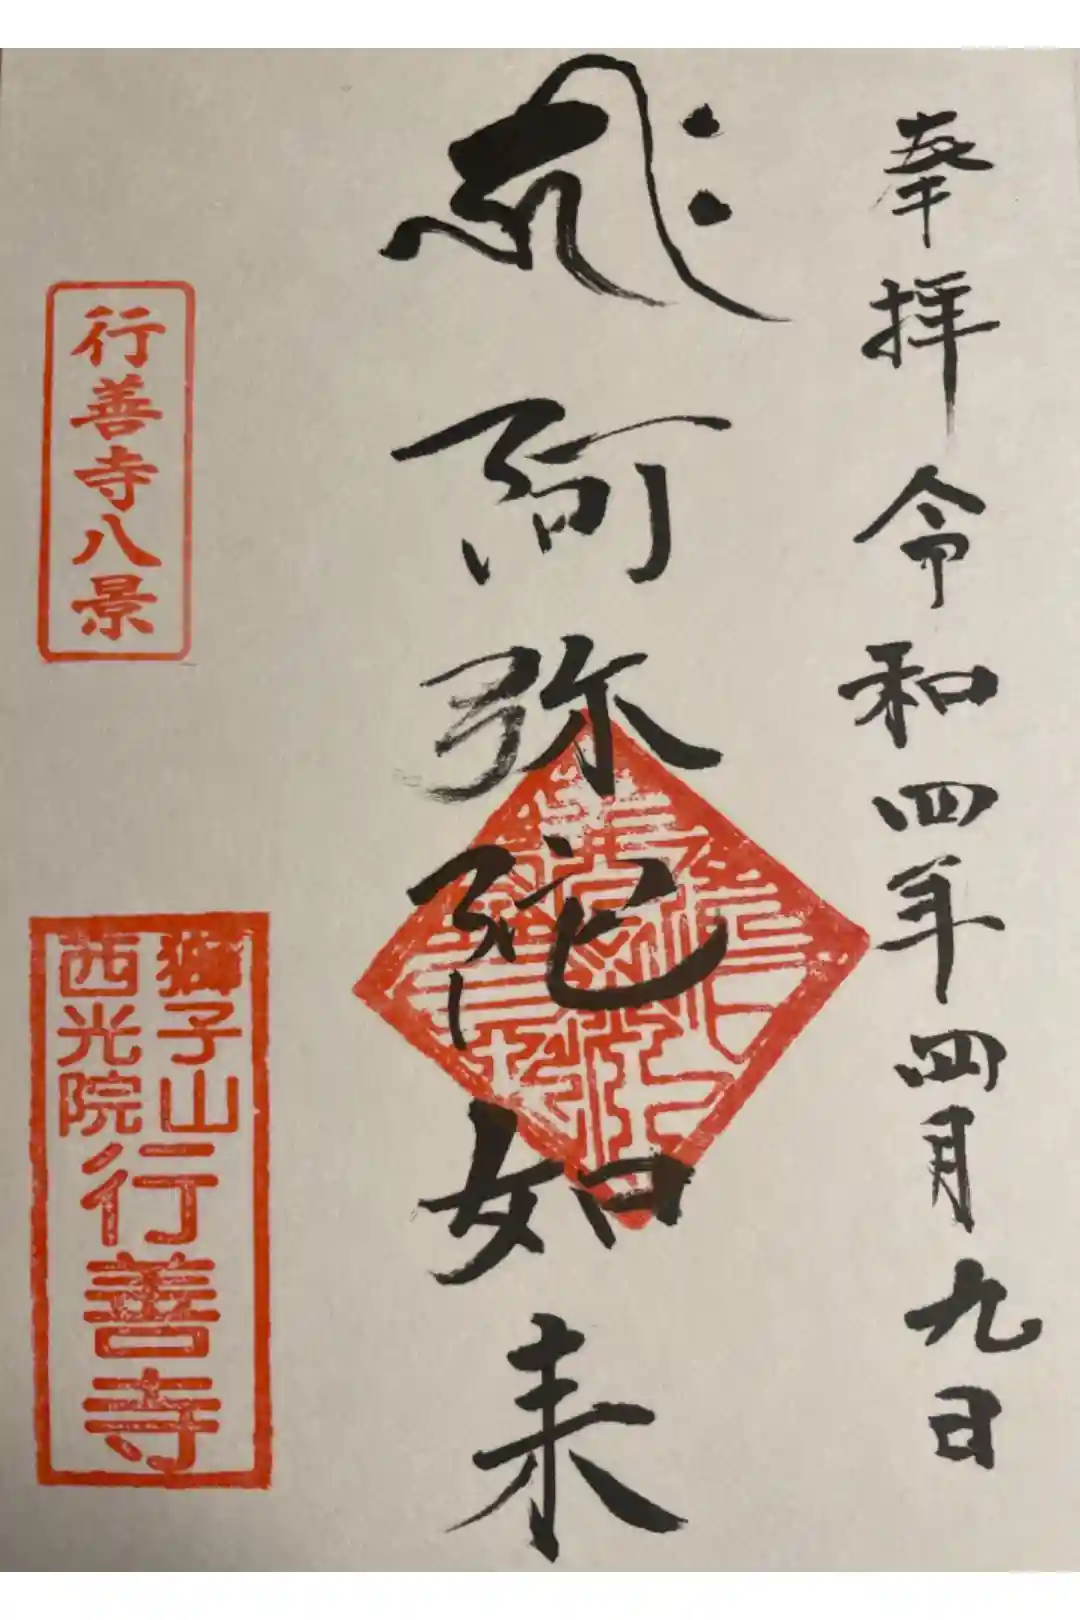 奉拝 令和四年四月九日
阿弥陀如来
行善寺八景
獅子山
西光院
行善寺